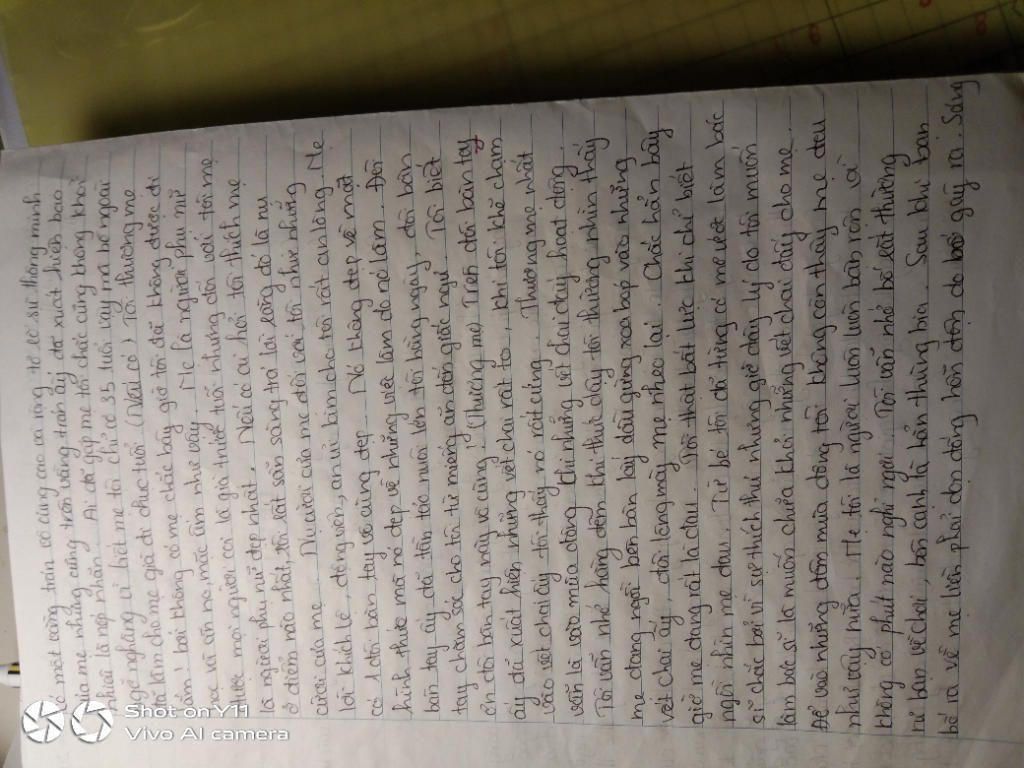 có một vầng trán vô cùng cao và rộng, tớ rõ sự thông minh
của mẹ nhưng cũng trên vầng trán ấy đã xuất hiện bao
nhiêu là nếp nhăn. Ai đã gặp mẹ tôi chắc cũng không khỏi
ngỡ ngàng vì biết mẹ tôi chỉ có 35 tuổi vậy mà bề ngoài
phải làm cho mẹ già đi chục tuổi (Nếu có) Tôi thương mẹ
lắm! bởi không có mẹ chắc bây giờ tôi đã không được đi
học và ăn no mặc ấm như vậy. Mẹ là người phụ nữ
được mọi người coi là già trước tuổi nhưng đối với tôi mẹ
là người phụ nữ đẹp nhất. Nếu có ai hỏi tôi thích mẹ
ở điểm nào nhất, tôi rất sẵn sàng trả lời rằng đó là nụ
cười của mẹ. Nụ cười của mẹ đối với tôi như những
lời khích lệ, động viên, an ủi làm cho tôi rất an lòng. Mẹ
có 1 đôi bàn tay vô cùng đẹp. Nó không đẹp về mặt
hình thức mà nó đẹp về những việc làm do nó làm. Đôi
bàn tay ấy đã tần tảo nuôi lớn tôi hằng ngày, đôi bàn
tay chăm sóc cho tôi từ miếng ăn đến giấc ngủ. Tôi biết
ơn đôi bàn tay này vô cùng! (Thương mẹ) Trên đôi bàn tay
ấy đã xuất hiện những vết chai rất to, khi tôi khẽ chạm
vào vết chai ấy tôi thấy nó rất cứng. Thương mẹ nhất
vẫn là vào mùa đông khi những vết chai đấy hoạt động.
Tôi vẫn nhớ hằng đêm khi thức dậy tôi thường nhìn thấy
mẹ đang ngồi bên bàn lấy dầu gừng xoa bóp vào những
vết chai ấy, đôi lông mày mẹ nheo lại. Chắc hẳn bây
giờ mẹ đang rất là đau. Tôi thật bất lực khi chỉ biết
ngồi nhìn mẹ đau. Từ bé tôi đã từng có mơ ước làm bác
sĩ chắc bởi vì sự thích thú nhưng giờ đây lý do tôi muốn
làm bác sĩ là muốn chữa khỏi những vết chai đấy cho mẹ.
Để vào những đêm mùa đông tôi không còn thấy mẹ đau
như vậy nữa. Mẹ tôi là người luôn luôn bận rộn và
không có phút nào nghỉ ngơi. Tôi vẫn nhớ bố tôi thường
rủ bạn về chơi, bên cạnh là hẳn thùng bia. Sau khi bạn
bố ra về mẹ liền phải dọn đống hỗn độn do bố gây ra. Sáng
Shot on Y11
Vivo AI camera